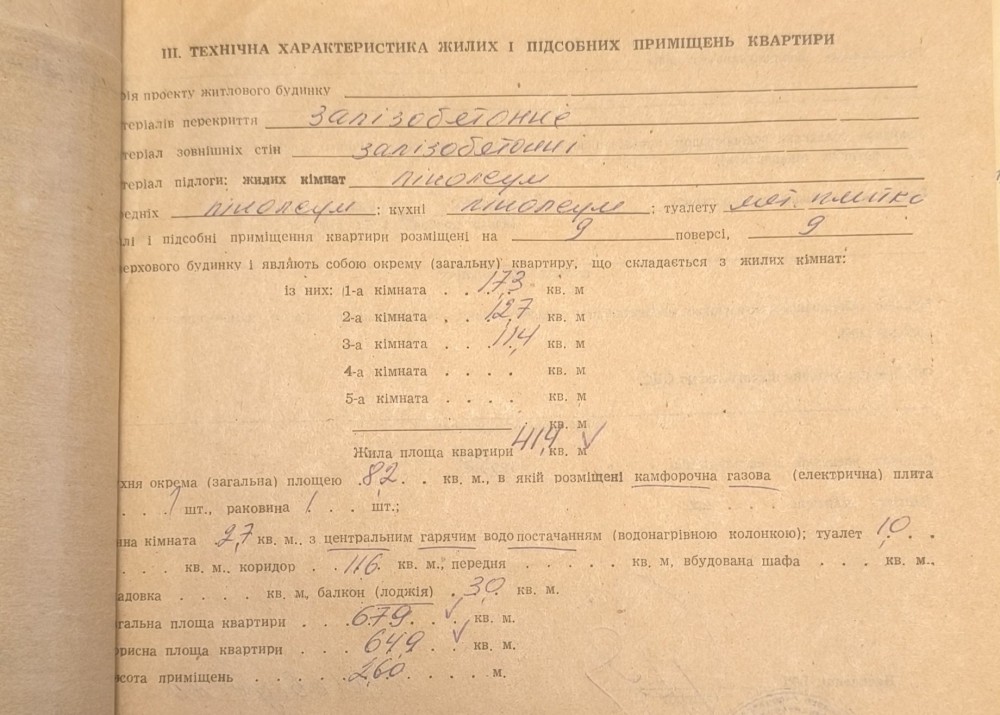 III. ТЕХНІЧНА ХАРАКТЕРИСТИКА ЖИЛИХ І ПІДСОБНИХ ПРИМІЩЕНЬ КВАРТИРИ
рія проекту житлового будинку
теріалів перекриття залізобетонне
теріал зовнішніх стін залізобетонні
теріал підлоги: жилих кімнат лінолеум
редніх лінолеум; кухні лінолеум; туалету мет. плитка
лі і підсобні приміщення квартири розміщені на 9 поверсі, 9
верхового будинку і являють собою окрему (загальну) квартиру, що складається з жилих кімнат:
із них: 1-а кімната . . 17,3 кв. м
2-а кімната . . 12,7 кв. м
3-а кімната . . 11,4 кв. м
4-а кімната . . . . кв. м
5-а кімната . . . . кв. м
кв. м
Жила площа квартири 41,4 кв. м
хня окрема (загальна) площею . 8,2 . . кв. м., в якій розміщені камфорочна газова (електрична) плита
. . 1 шт., раковина 1 . . шт.;
нна кімната 2,7 кв. м.. з центральним гарячим водопостачанням (водонагрівною колонкою); туалет 1,0 . .
. . . кв. м.. коридор . . 11,6 кв. м., передня . . . . . кв. м, вбудована шафа . . . . кв. м.,
адовка . . . . кв. м, балкон (лоджія) . 3,0 кв. м.
гальна площа квартири . . . 67,9 . . кв. м.
орисна площа квартири . . . 64,9 . . кв. м.
сота приміщень . . . . . 2,60 . . . . м.